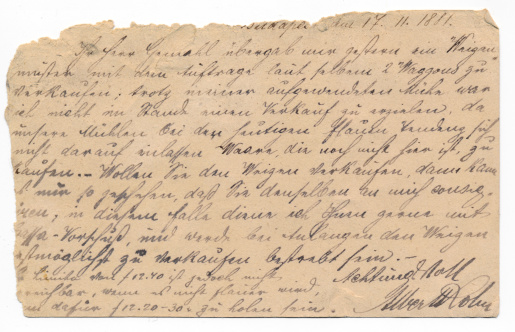 Budapest, den 17. 11. 1881.
Ihr Herr Gemahl übergab mir gestern ein Weizen
muster mit dem Auftrage laut selbem 2 Waggons zu
verkaufen; trotz meiner aufgewendeten Mühe war
ich nicht im Stande einen Verkauf zu erzielen, da
unsere Mühlen bei der heutigen flauen Tendenz sich
nicht darauf einlassen Waare, die noch nicht hier ist, zu
kaufen. – Wollen Sie den Weizen verkaufen, dann kann
es nur so geschehen, daß Sie denselben an mich consig-
niren, in diesem Falle diene ich Ihnen gerne mit
Vorschuß, und werde bei Anlangen den Weizen
bestmöglichst zu verkaufen bestrebt sein. –
Limite von f 12.40 ist jedoch nicht
erreichbar, wenn es nicht flauer wird,
dafür f 12.20-30 zu holen sein.
Achtungsvoll
Albert